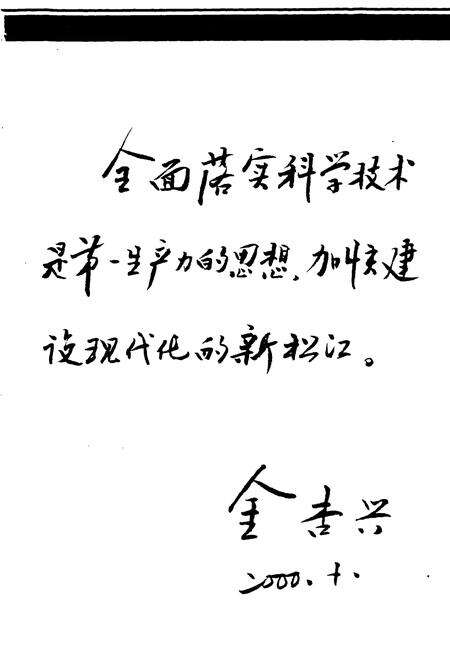 全面落实科学技术
是第一生产力的思想，加快建
设现代化的新松江。
金杏兴
2000.十.